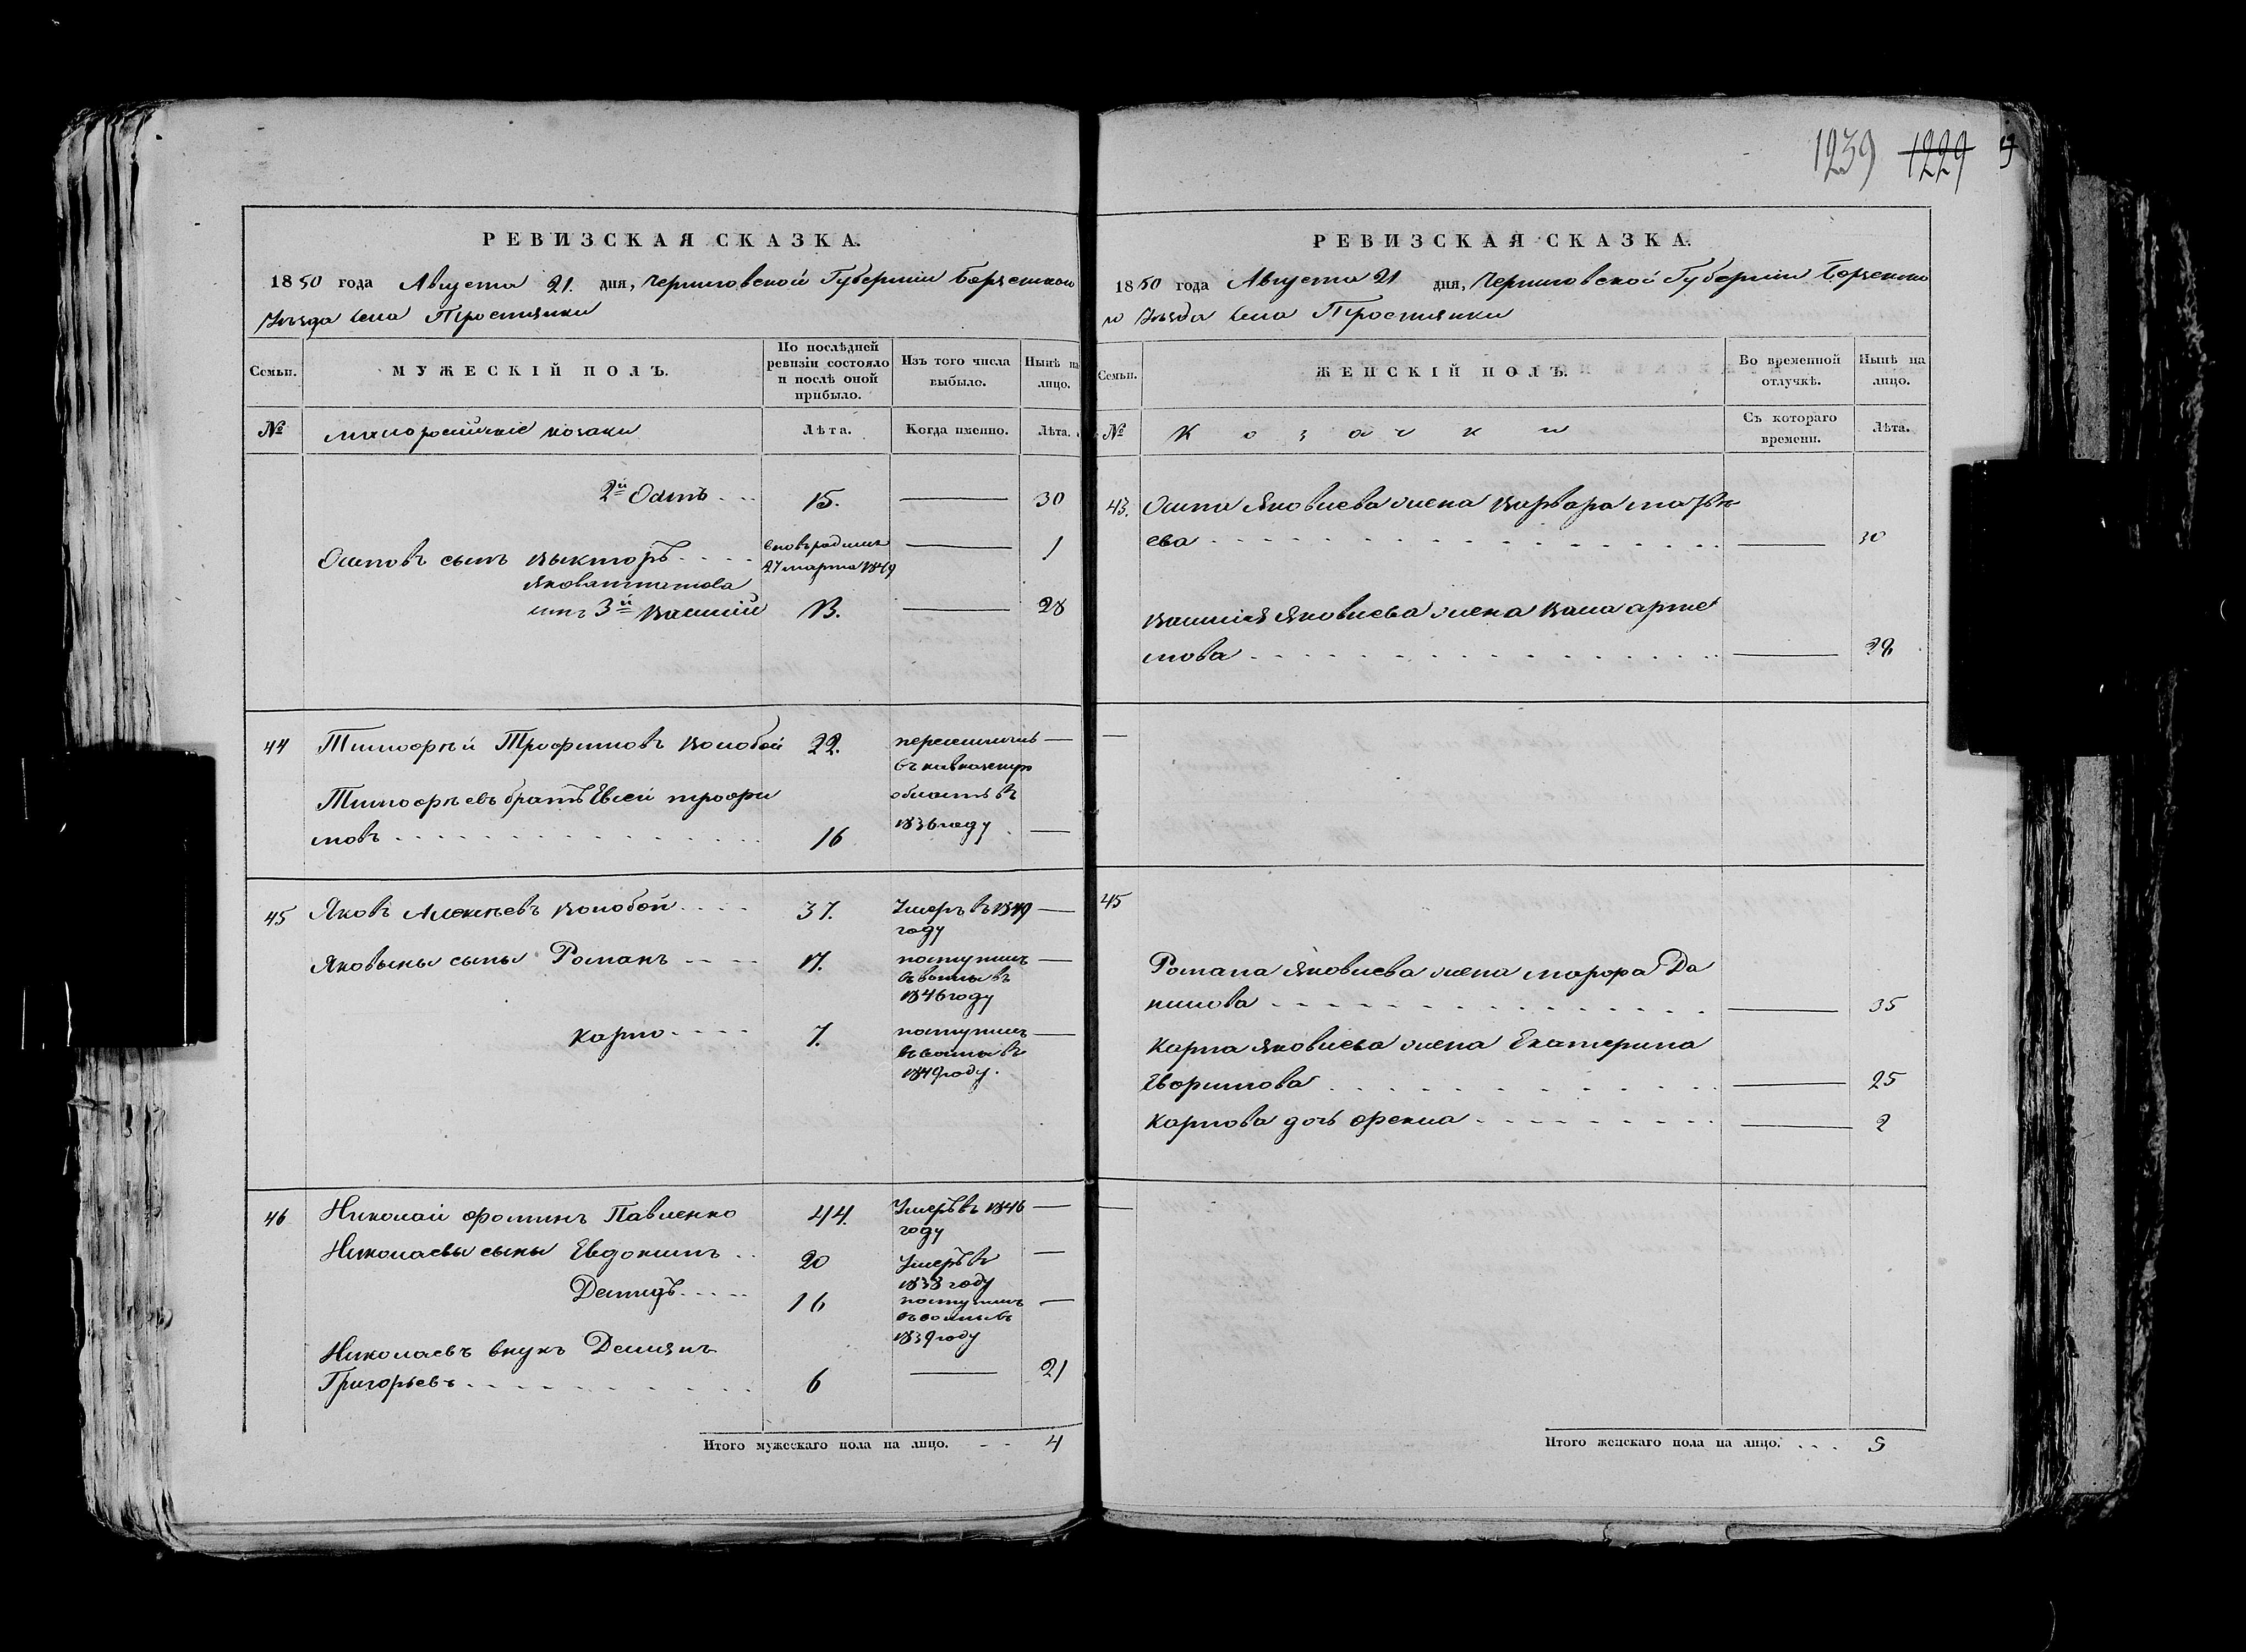 1239 1229
РЕВИЗСКАЯ СКАЗКА.
1850 года Августа 21. дня, Черниговской Губернии Борзенскаго
Уезда Села Тростянки
Семьи.
МУЖЕСКІЙ ПОЛЪ.
По послѣдней
ревизіи состояло
и послѣ оной
прибыло.
Изъ того числа
выбыло.
Нынѣ на
лицо.
№
малороссійскіе козаки
Лѣта.
Когда именно.
Лѣта.
2й Осипъ 15. 30
Осиповъ сынъ Выкторъ
вновь родился
27 марта 1849
1
3й Василій 13. 28
44 Тимофѣй Трофимовъ Волобой 22.
Тимофѣевъ братъ Евсей трофи
мовъ 16
переселились
въ кавказскую
область въ
1836 году
45 Яковъ Алексѣевъ Волобой 37.
Умеръ въ 1849
году
Яковыны сыны Романъ 17.
поступилъ
въ
1846 году
Карпо 7.
поступилъ
въ
1849 году.
46 Николай фоминъ Павленко 44.
Умеръ въ 1846
году
Николаевы сыны Евдокимъ 20
Умеръ въ
1838 году
Демидъ 16
поступилъ
въ
1839 году
Николаевъ внукъ Демянъ
Григорьевъ 6 21
Итого мужескаго пола на лицо. 4
РЕВИЗСКАЯ СКАЗКА.
1850 года Августа 21 дня, Черниговской Губерніи Борзенска
го Уезда Села Тростянки
Семьи.
ЖЕНСКІЙ ПОЛЪ.
Во временной
отлучкѣ.
Нынѣ на
лицо.
№
Козачки
Съ котораго
времени.
Лѣта.
43. Осипа Яковлева жена Варвара
ева 30
Василія Яковлева жена арте
мова 28
45
Романа Яковлева жена Да
нилова 35
Карпа Яковлева жена Екатерина
25
Карпова дочь фекла 2
Итого женскаго пола на лицо. 5